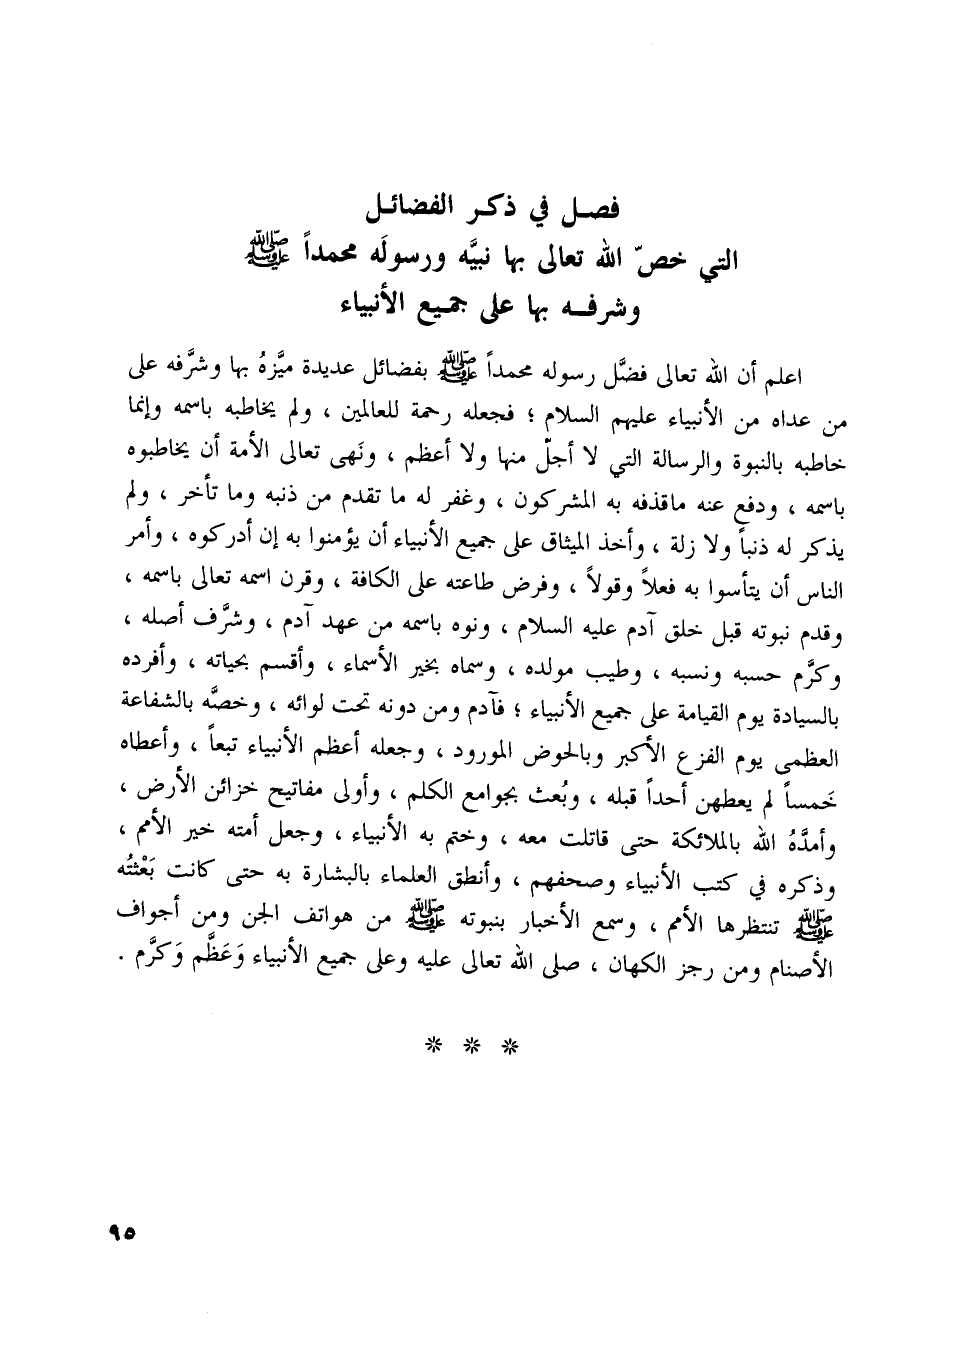 فصل في ذكر الفضائل
التي خصّ الله تعالى بها نبيَّه ورسولَه محمداً ﷺ
وشرفه بها على جميع الأنبياء
اعلم أن الله تعالى فضَّل رسوله محمداً ﷺ بفضائل عديدة ميَّزهُ بها وشرَّفه على
من عداه من الأنبياء عليهم السلام ؛ فجعله رحمة للعالمين ، ولم يخاطبه باسمه وإنما
خاطبه بالنبوة والرسالة التي لا أجلّ منها ولا أعظم ، ونَهى تعالى الأمة أن يخاطبوه
باسمه ، ودفع عنه ماقذفه به المشركون ، وغفر له ما تقدم من ذنبه وما تأخر ، ولم
يذكر له ذنباً ولا زلة ، وأخذ الميثاق على جميع الأنبياء أن يؤمنوا به إن أدركوه ، وأمر
الناس أن يتأسوا به فعلاً وقولاً ، وفرض طاعته على الكافة ، وقرن اسمه تعالى باسمه ،
وقدم نبوته قبل خلق آدم عليه السلام ، ونوه باسمه من عهد آدم ، وشرَّف أصله ،
وكرَّم حسبه ونسبه ، وطيب مولده ، وسماه بخير الأسماء ، وأقسم بحياته ، وأفرده
بالسيادة يوم القيامة على جميع الأنبياء ؛ فآدم ومن دونه تحت لوائه ، وخصَّه بالشفاعة
العظمى يوم الفزع الأكبر وبالحوض المورود ، وجعله أعظم الأنبياء تبعاً ، وأعطاه
خَمساً لم يعطهن أحداً قبله ، وبُعث بجوامع الكلم ، وأولى مفاتيح خزائن الأرض ،
وأمدَّهُ الله بالملائكة حتى قاتلت معه ، وختم به الأنبياء ، وجعل أمته خير الأمم ،
وذكره في كتب الأنبياء وصحفهم ، وأنطق العلماء بالبشارة به حتى كانت بَعْثتُه
ﷺ تنتظرها الأمم ، وسمع الأخبار بنبوته ﷺ من هواتف الجن ومن أجواف
الأصنام ومن رجز الكهان ، صلى الله تعالى عليه وعلى جميع الأنبياء وَعَظَّم وَكرَّم .
* * *
٩٥